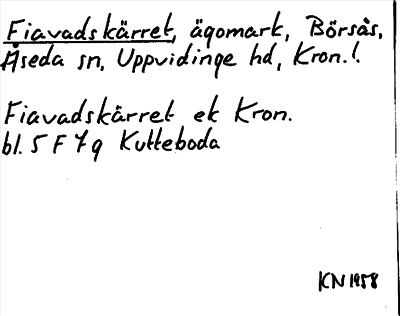 Fiavadskärret, ägomark, Börsås,
Åseda sn, Uppvidinge hd, Kron. l.
Fiavadskärret ek Kron.
bl. 5 F 7 g Kutteboda
KN 1958